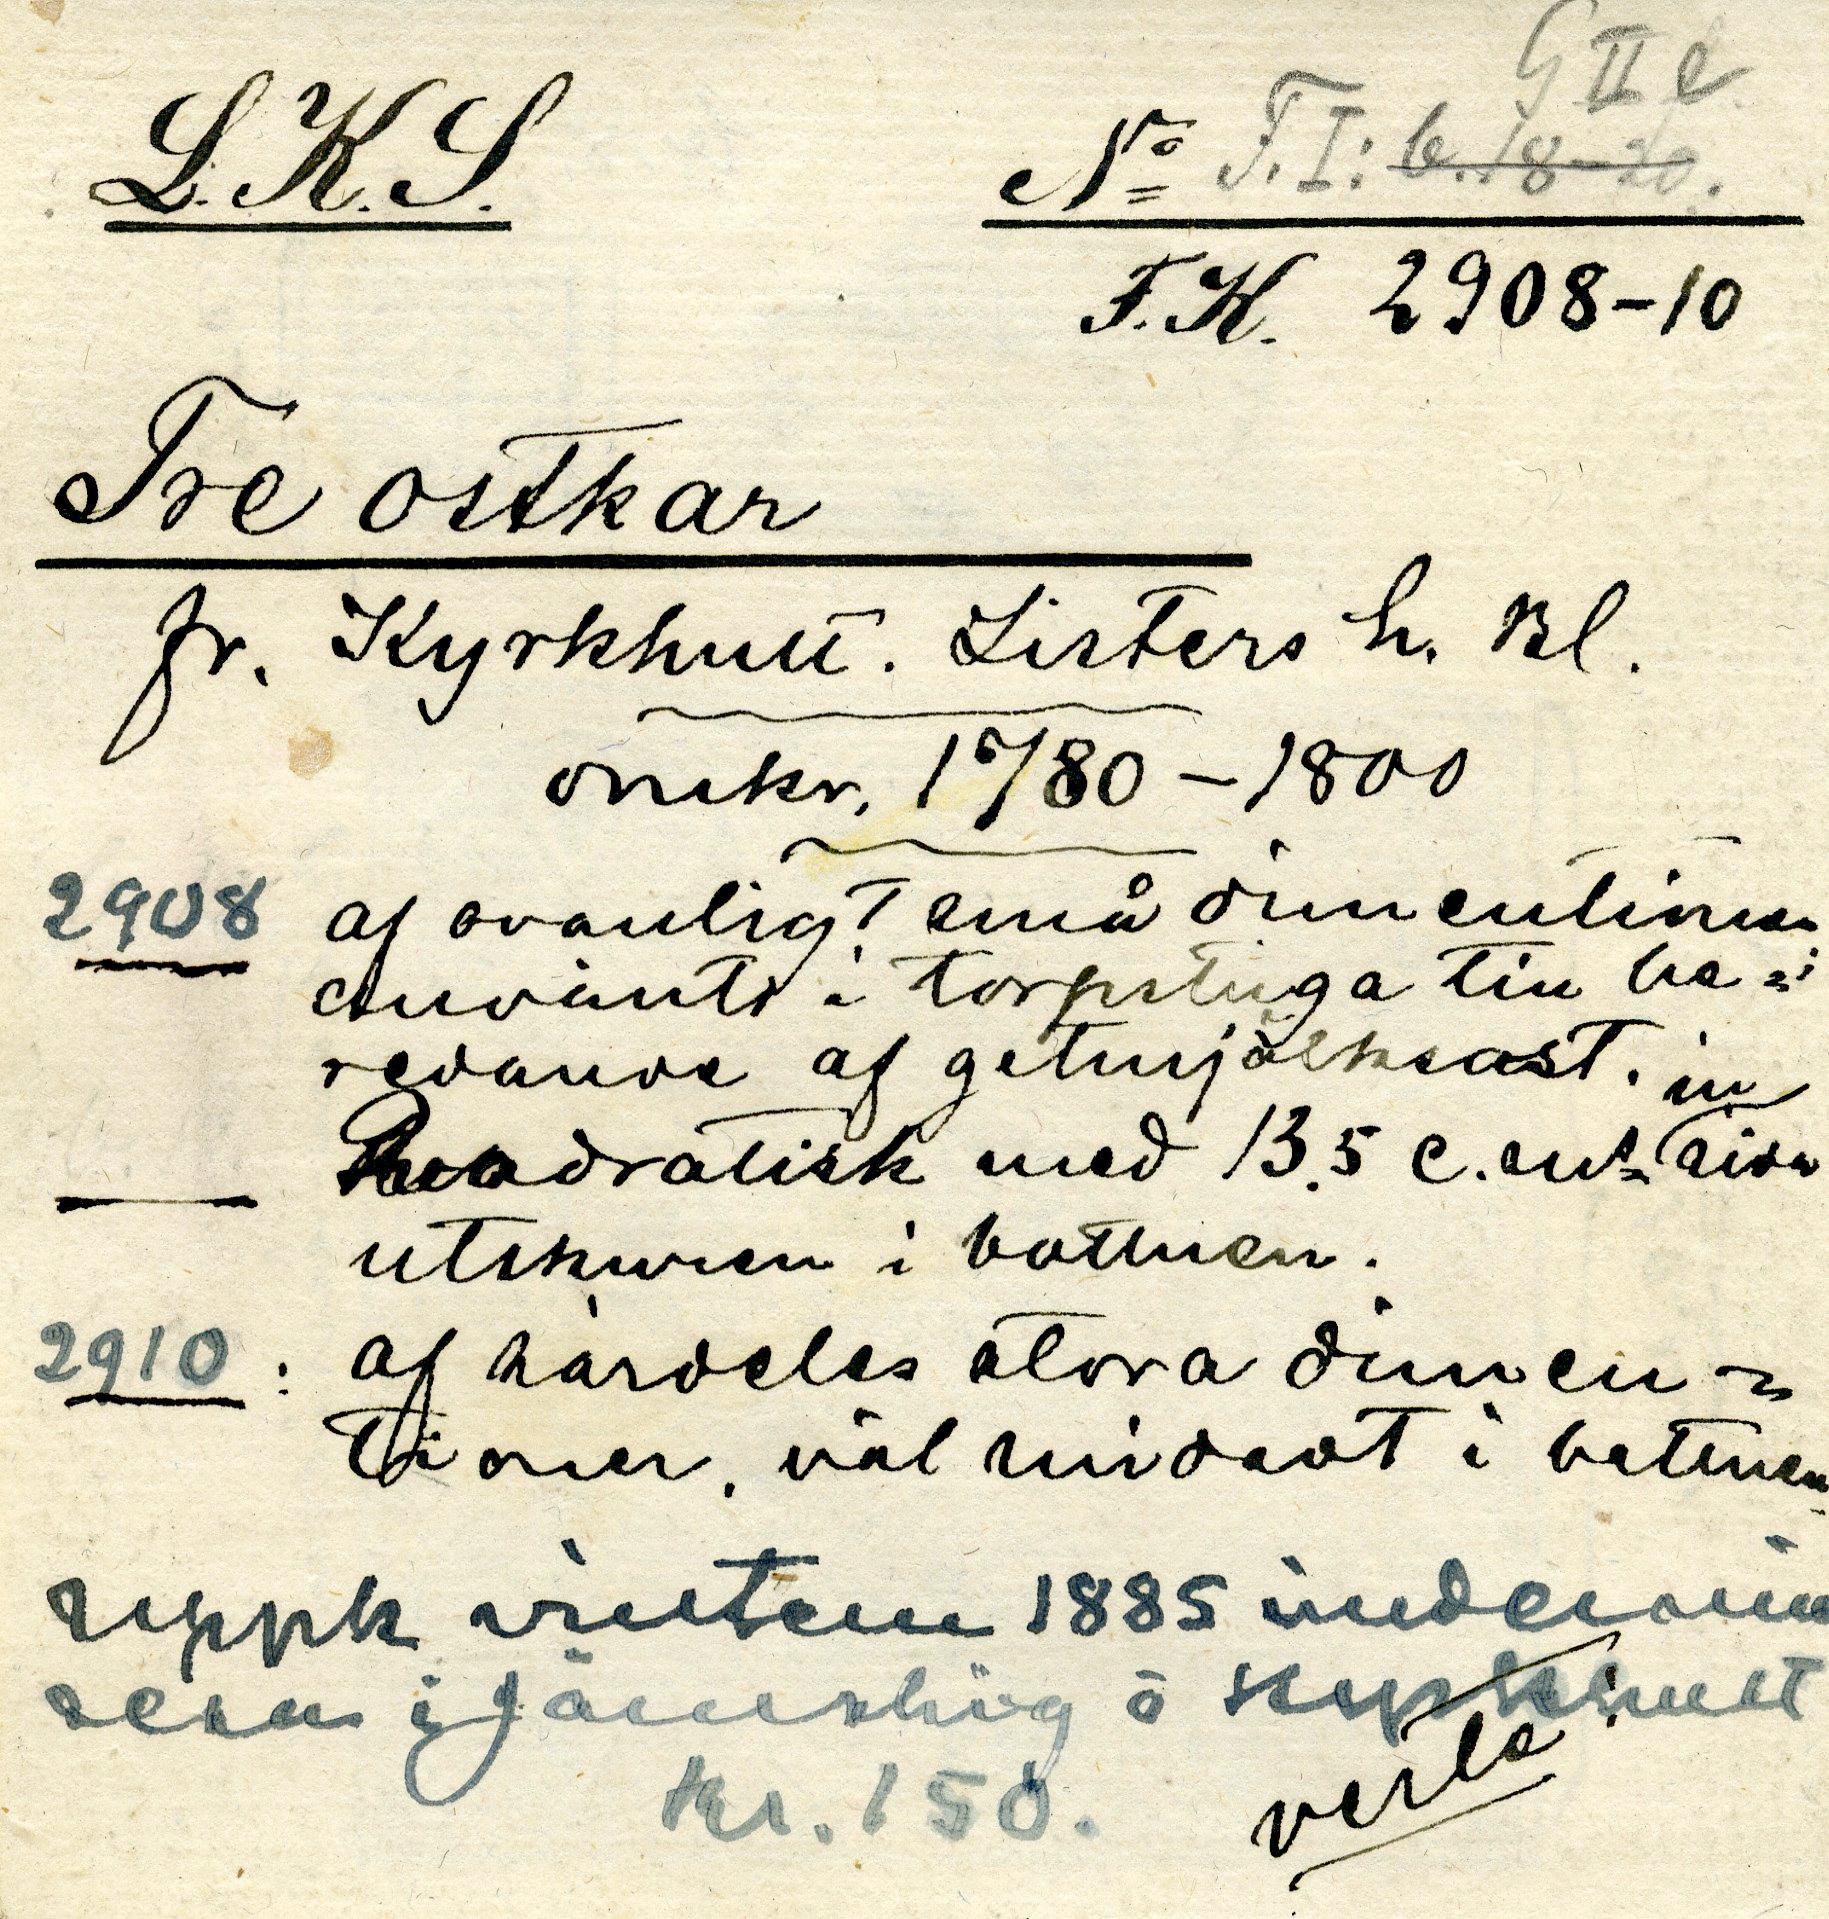 G II e.
L.K.S. No F.I: b. 18-20.
F.K. 2908-10
Tre ostkar
fr. Kyrkhult. Listers h. Bl.
omkr. 1780-1800
2908 af ovanligt små dimentioner
använts i torpstuga till be=
redande af getmjölksost. in
Quadratisk med 13.5 c.ms sida
utskuren i bottnen.
2910: af särdeles stora dimen=
tioner, väl i bottnen
uppk vintern 1885 under min
resa i Jämshög o Kyrkhult
Kr. 150.